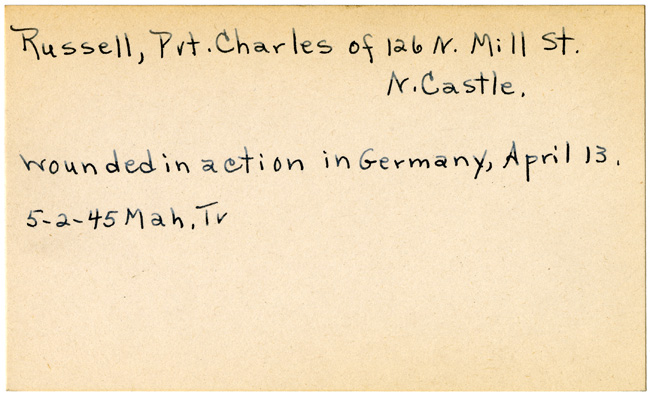 Russell, Pvt. Charles of 126 N. Mill St.
N. Castle.
wounded in action in Germany, April 13.
5-2-45 Mah. Tv